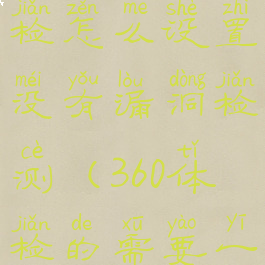 jiǎn zěn me shè zhì
检怎么设置
méi yǒu lòu dòng jiǎn
没有漏洞检
cè tǐ
测（360体
jiǎn de xū yào yī
检的需要一